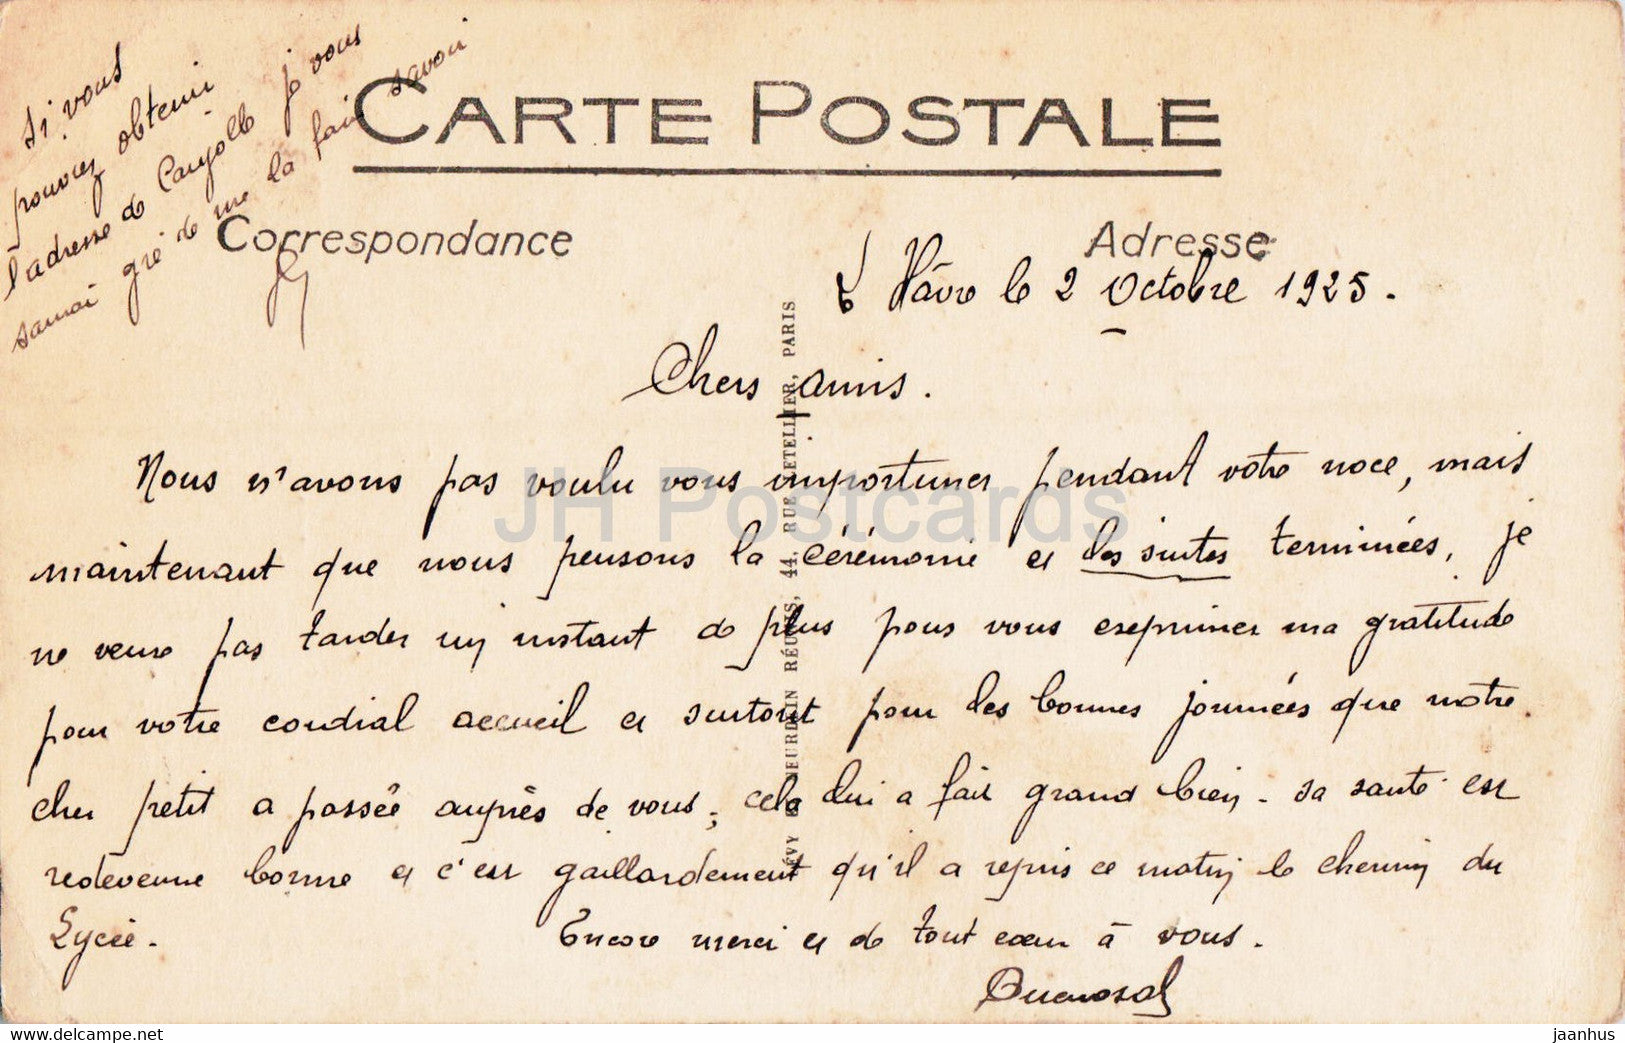 Si vous
pouvez obtenir
l'adresse de je vous
saurai gré de me la faire savoir
CARTE POSTALE
Correspondance
Adresse
Hâvre le 2 Octobre 1925.
Chers amis.
Nous n'avons pas voulu vous importuner pendant votre noce, mais
maintenant que nous pensons la cérémonie et les suites terminées, je
ne veux pas tarder un instant de plus pour vous exprimer ma gratitude
pour votre cordial accueil et surtout pour les bonnes journées que notre
cher petit a passée auprès de vous; cela lui a fait grand bien. Sa santé est
redevenue bonne et c'est gaillardement qu'il a repris ce matin le chemin du
Lycée.
Encore merci et de tout cœur à vous.
LÉVY & NEURDEIN RÉUNIS, 44, RUE LETELLIER, PARIS
JH Postcards
www.delcampe.net
jaanhus